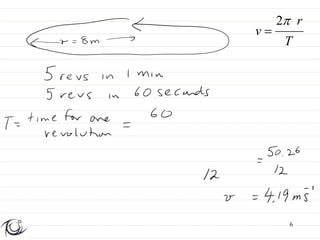 v = 2π r / T
r = 8m
5 revs in 1 min
5 revs in 60 seconds
T = time for one revolution = 60
12
= 50.26 / 12
v = 4.19 ms⁻¹
6